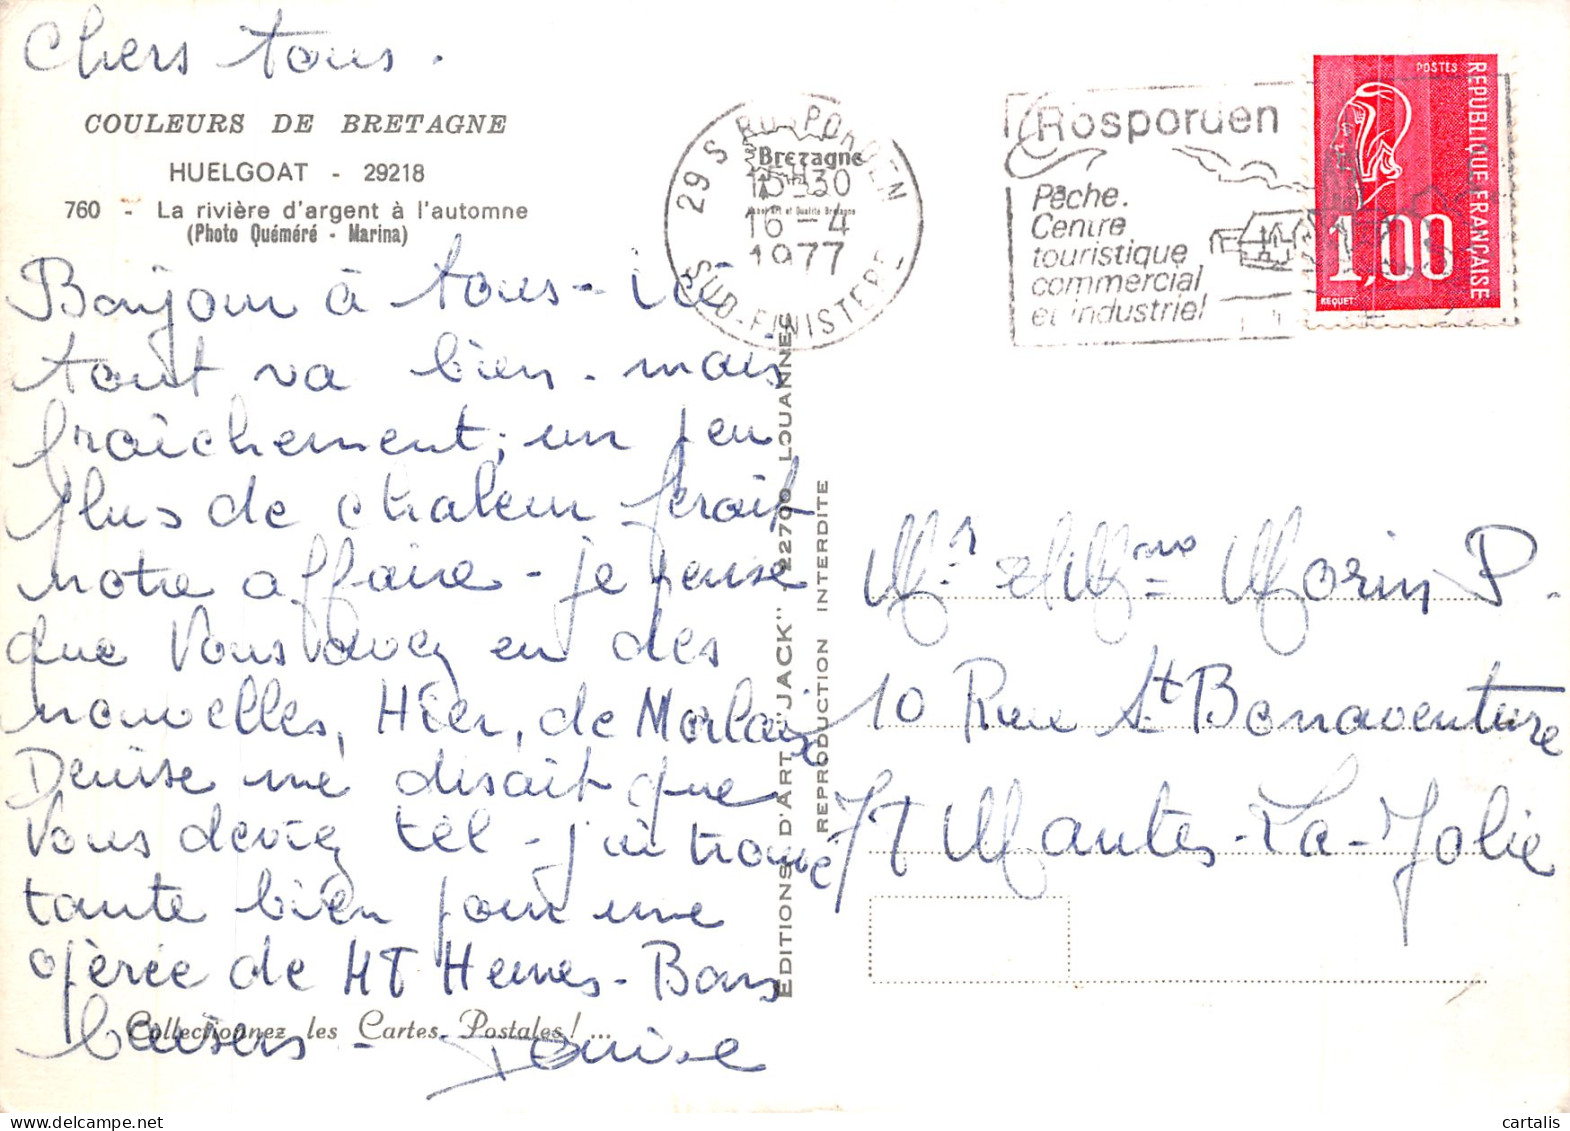 Chers tous.
COULEURS DE BRETAGNE
HUELGOAT - 29218
760 - La rivière d'argent à l'automne
(Photo Quéméré - Marina)
Bonjour à tous - ici
tout va bien - mais
fraîchement; un peu
plus de chaleur ferait
notre affaire - je pense
que vous avez eu des
nouvelles, Hier, de Morlaix
Denise me disait que
vous deviez tél - j'ai trouvé
tante bien pour une
opérée de
Bons
baisers - Denise
Collectionnez les Cartes Postales ! ...
EDITIONS D'ART "JACK" - 22700 LOUANNEC
REPRODUCTION INTERDITE
29 S ROSPORDEN
Bretagne
15H30
16-4
1977
SUD-FINISTERE
Rosporden
Pêche.
Centre
touristique
commercial
et industriel
POSTES
REPUBLIQUE FRANÇAISE
1,00
BEQUET
Mr et Mme Morin P.
10 Rue St Bonaventure
Mantes-La-Jolie
cartalis
delcampe.net